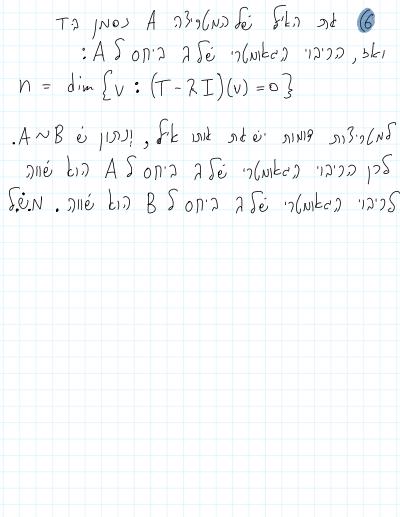 ⑥ את האיל של המטריצה A נסמן בT
ואז, הריבוי הגאומטרי של λ ביחס לA:
n = dim{v : (T - λI)(v) = 0}
למטריצות דומות יש את אותו איל, ונתון ש A~B.
לכן הריבוי הגאומטרי של λ ביחס לA הוא שווה
לריבוי הגאומטרי של λ ביחס לB הוא שווה. מ.ש.ל